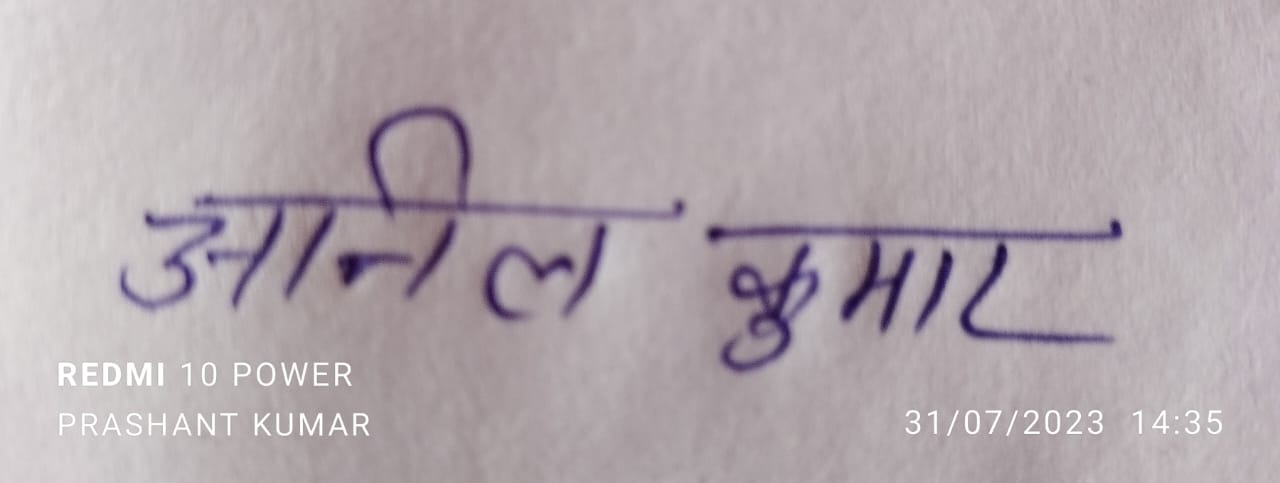 अनिल कुमार
REDMI 10 POWER
PRASHANT KUMAR
31/07/2023 14:35